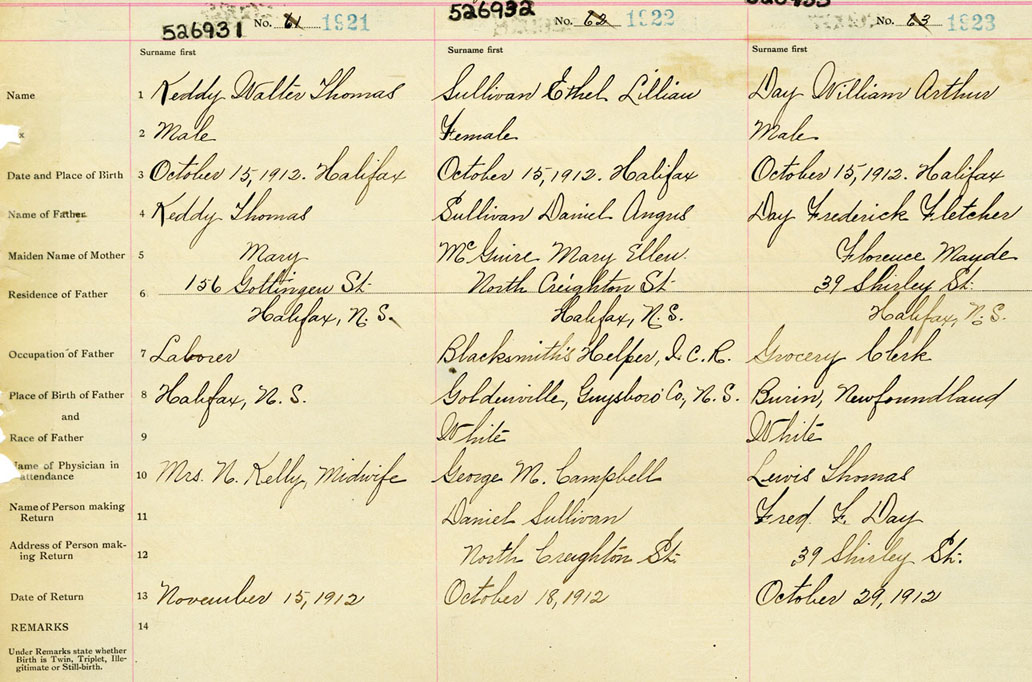 526931 No. 61 1921
526932 No. 62 1922
No. 63 1923
Surname first Surname first Surname first
Name 1 Keddy Walter Thomas Sullivan Ethel Lillian Day William Arthur
x 2 Male Female Male
Date and Place of Birth 3 October 15, 1912. Halifax October 15, 1912. Halifax October 15, 1912. Halifax
Name of Father 4 Keddy Thomas Sullivan Daniel Angus Day Frederick Fletcher
Maiden Name of Mother 5 Mary McGuire Mary Ellen. Florence Mayde
Residence of Father 6 156 Gottingen St. North Creighton St. 39 Shirley St.
Halifax, N.S. Halifax, N.S. Halifax, N.S.
Occupation of Father 7 Laborer Blacksmith's Helper, I.C.R. Grocery Clerk
Place of Birth of Father 8 Halifax, N.S. Goldenville, Guysboro Co, N.S. Burin, Newfoundland
and
Race of Father 9 White White
Name of Physician in
attendance 10 Mrs. N. Kelly, Midwife George M. Campbell Lewis Thomas
Name of Person making
Return 11 Daniel Sullivan Fred. F. Day
Address of Person mak-
ing Return 12 North Creighton St. 39 Shirley St.
Date of Return 13 November 15, 1912 October 18, 1912 October 29, 1912
REMARKS 14
Under Remarks state whether
Birth is Twin, Triplet, Ille-
gitimate or Still-birth.